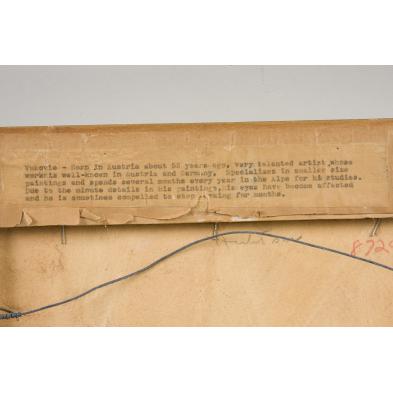 Vukovic - Born in Austria about 52 years ago, very talented artist whose
work is well-known in Austria and Germany. Specializes in smaller size
paintings and spends several months every year in the Alps for his studies.
Due to the minute details in his paintings, his eyes have become affected
and he is sometimes compelled to stop for months.
8728